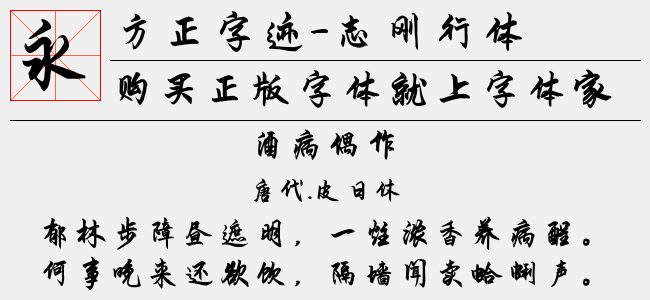 永
方正字迹-志刚行体
购买正版字体就上字体家
酒病偶作
唐代.皮日休
郁林步障昼遮明，一炷浓香养病酲。
何事晚来还欲饮，隔墙闻卖蛤蜊声。